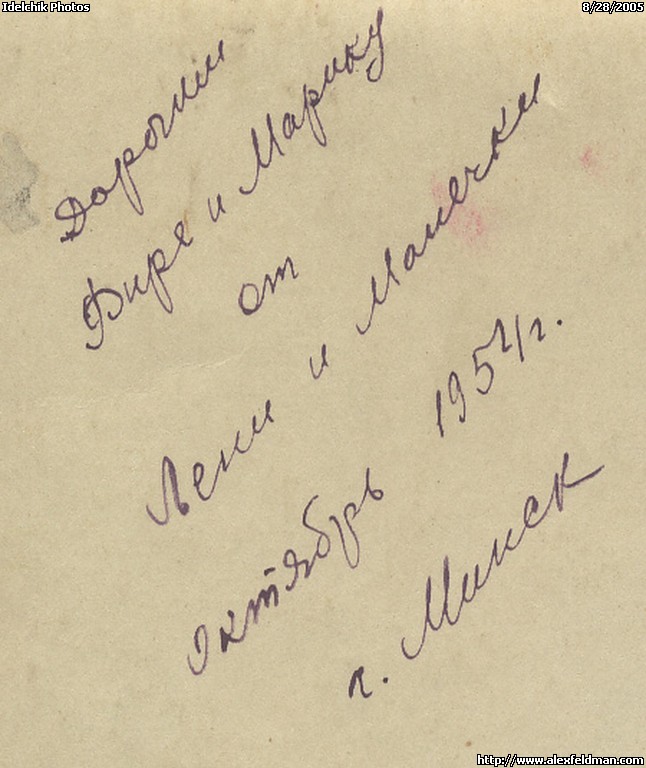 Idelchik Photos
8/28/2005
Дорогим
Фире и Марику
от
Лени и Манечки
октябрь 1954г.
г. Минск
http://www.alexfeldman.com